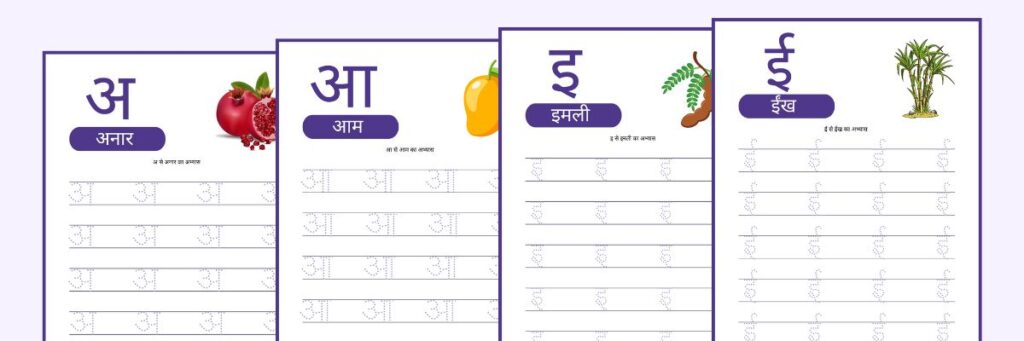 अ
अनार
अ से अनार का अभ्यास
अ अ अ अ
अ अ अ अ
अ अ अ अ
अ अ अ अ
आ
आम
आ से आम का अभ्यास
आ आ आ आ
आ आ आ आ
आ आ आ आ
आ आ आ आ
इ
इमली
इ से इमली का अभ्यास
इ इ इ
इ इ इ
इ इ इ
इ इ इ
इ इ इ
ई
ईंख
ई से ईंख का अभ्यास
ई ई ई ई
ई ई ई ई
ई ई ई ई
ई ई ई ई
ई ई ई ई